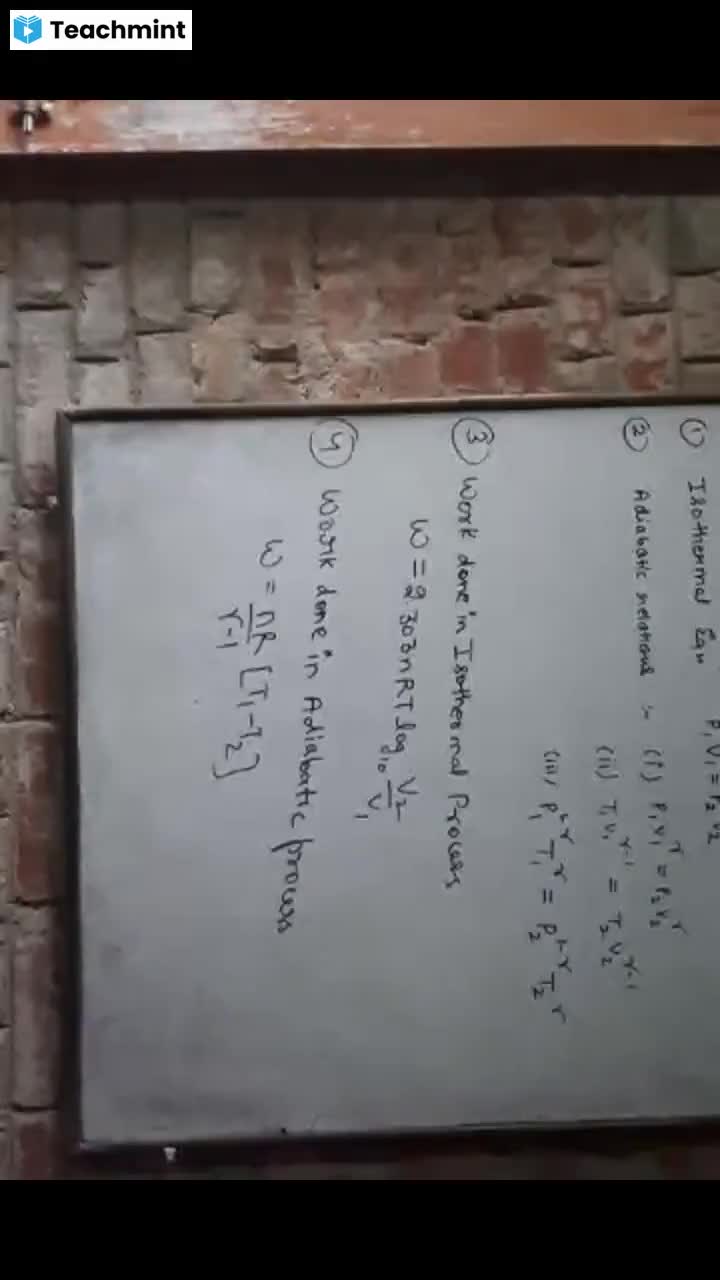 Teachmint
① Isothermal Eqn P₁V₁ = P₂V₂
② Adiabatic relations :- (i) P₁V₁^γ = P₂V₂^γ
(ii) T₁V₁^γ-1 = T₂V₂^γ-1
(iii) P₁^1-γ T₁^γ = P₂^1-γ T₂^γ
③ Work done in Isothermal Process
W = 2.303nRT log₁₀ V₂/V₁
④ Work done in Adiabatic process
W = nR/γ-1 [T₁-T₂]